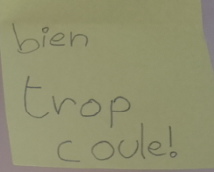 bien
trop
coule!